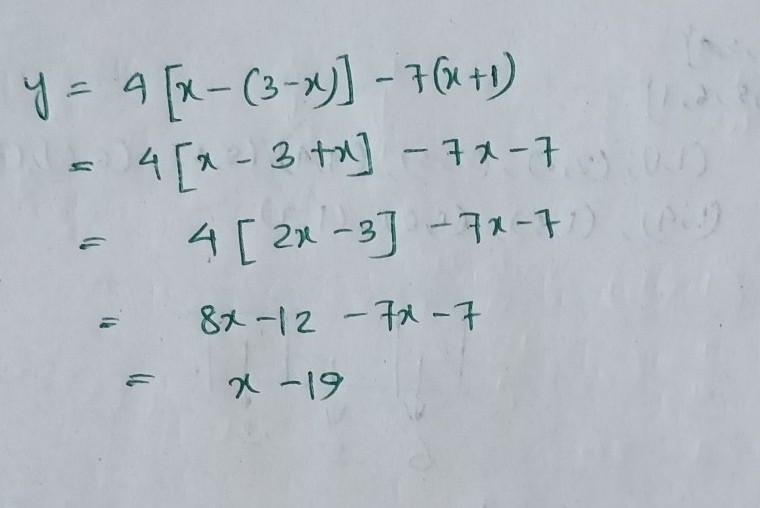 y = 4[x-(3-x)] - 7(x+1)
= 4[x - 3 +x] - 7x - 7
= 4[ 2x - 3] - 7x - 7
= 8x - 12 - 7x - 7
= x - 19